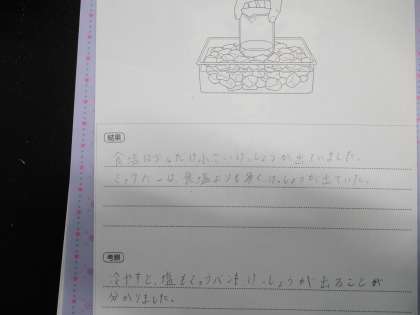 結果
食塩は少しだけ小さいけっしょうが出ていました。
ミョウバンは、食塩よりも早くけっしょうが出ていた。
考察
冷やすと、塩もミョウバンもけっしょうが出ることが
分かりました。